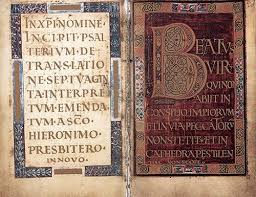 INXPINOMINE
INCIPIT·PSAL
TERIUM·DE
TRANSLATI
ONE·SEPTVAGIN
TAINTERPRE
TVM·EMENDA
TVM·ASCO·
HIERONIMO·
PRESBITERO·
INNOVO·
BEATV
VIR
QVINO
ABIIT IN
CONSILIO IMPIORVM
ET IN VIA PECCATORVM
NON STETIT ET IN
CATHEDRA PESTILEN